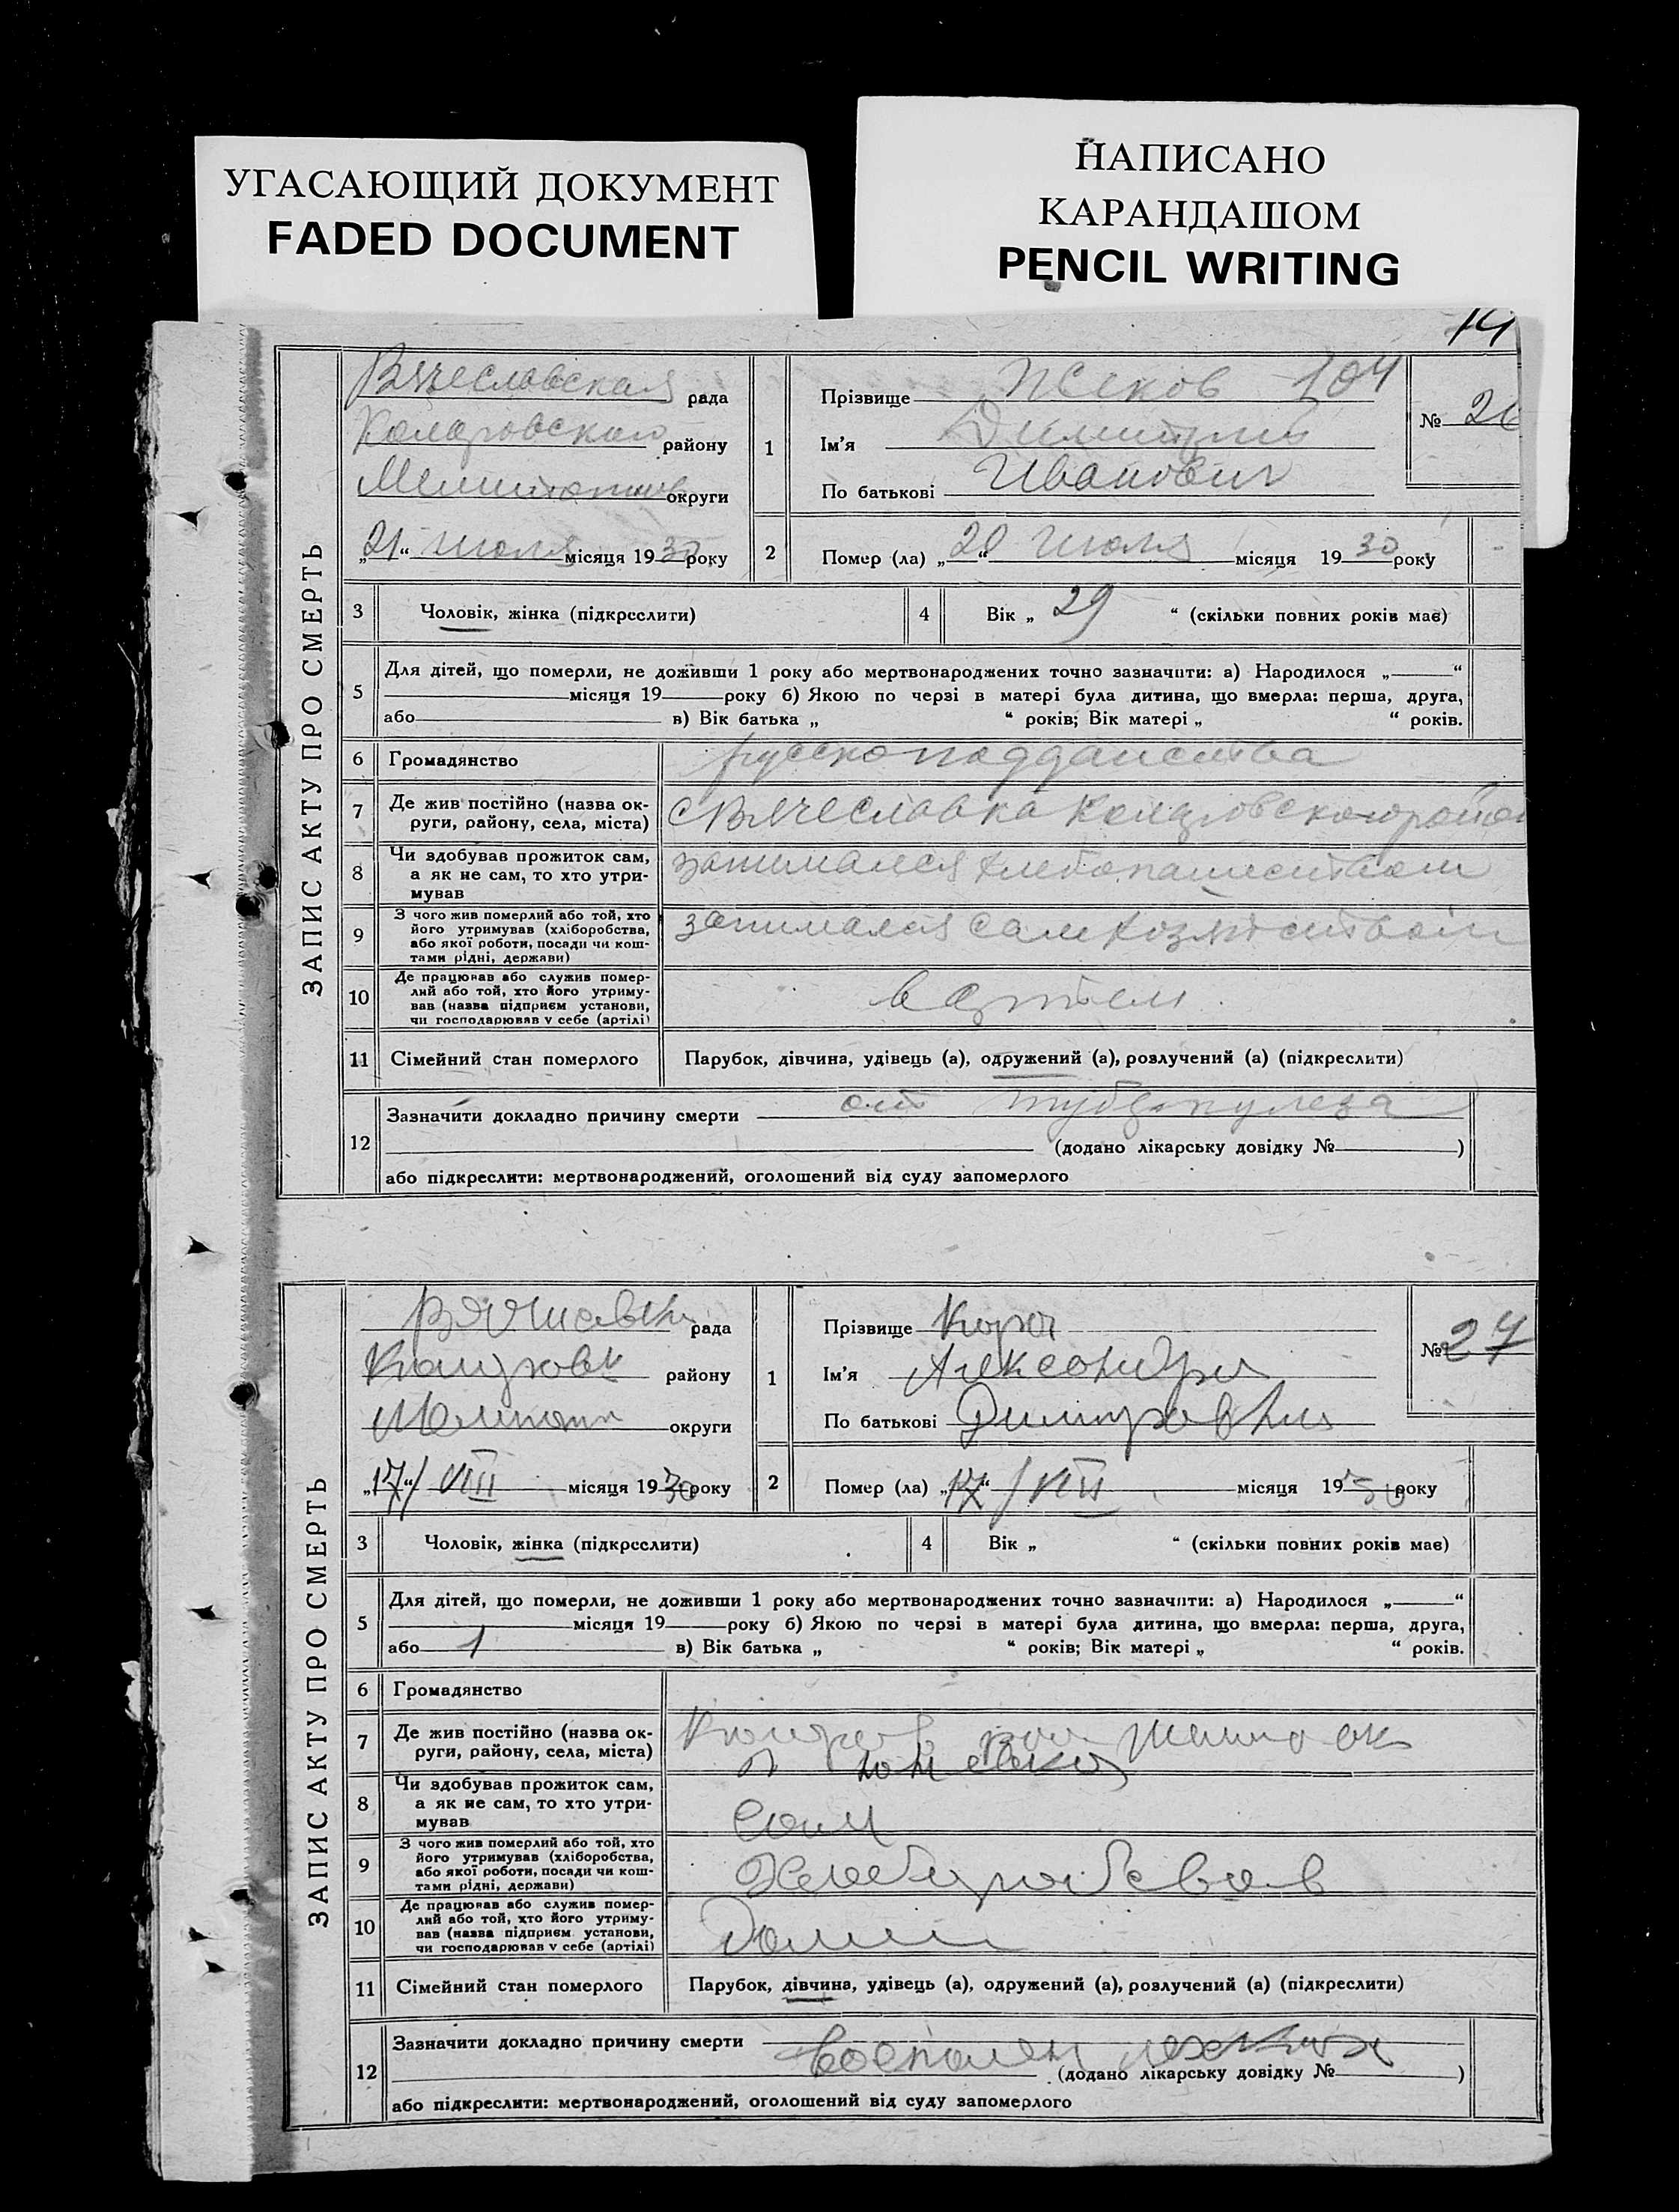 УГАСАЮЩИЙ ДОКУМЕНТ
FADED DOCUMENT
НАПИСАНО
КАРАНДАШОМ
PENCIL WRITING
14
ЗАПИС АКТУ ПРО СМЕРТЬ
Вячеславская рада
Коларовского району
округи
„21“ июля місяця 1930 року
1
Прізвище 104
Ім'я Димитрий
По батькові Иванович
№ 26
2
Помер (ла) „20“ июля місяця 1930 року
3 Чоловік, жінка (підкреслити)
4 Вік „ 29 “ (скільки повних років має)
5
Для дітей, що померли, не доживши 1 року або мертвонароджених точно зазначити: а) Народилося „ “
місяця 19 року б) Якою по черзі в матері була дитина, що вмерла: перша, друга,
або в) Вік батька „ “ років; Вік матері „ “ років.
6 Громадянство русско подданства
7 Де жив постійно (назва ок-
руги, району, села, міста)
с Вячеславка Коларовского район
8 Чи здобував прожиток сам,
а як не сам, то хто утри-
мував
занимался хлебопашеством
9 З чого жив померлий або той, хто
його утримував (хліборобства,
або якої роботи, посади чи кош-
тами рідні, держави)
занимался сам хозяйством
10 Де працював або служив помер-
лий або той, хто його утриму-
вав (назва підприєм установи,
чи господарював у себе (артілі)
в артели
11 Сімейний стан померлого Парубок, дівчина, удівець (а), одружений (а), розлучений (а) (підкреслити)
12
Зазначити докладно причину смерти от туберкулеза
(додано лікарську довідку № )
або підкреслити: мертвонароджений, оголошений від суду запомерлого
ЗАПИС АКТУ ПРО СМЕРТЬ
рада
району
округи
„17“/VIII місяця 1930 року
1
Прізвище
Ім'я Александра
По батькові Димитровна
№ 27
2
Помер (ла) „17“/VIII місяця 1930 року
3 Чоловік, жінка (підкреслити)
4 Вік „ “ (скільки повних років має)
5
Для дітей, що померли, не доживши 1 року або мертвонароджених точно зазначити: а) Народилося „ “
місяця 19 року б) Якою по черзі в матері була дитина, що вмерла: перша, друга,
або 1 в) Вік батька „ “ років; Вік матері „ “ років.
6 Громадянство
7 Де жив постійно (назва ок-
руги, району, села, міста)
8 Чи здобував прожиток сам,
а як не сам, то хто утри-
мував
Сам
9 З чого жив померлий або той, хто
його утримував (хліборобства,
або якої роботи, посади чи кош-
тами рідні, держави)
10 Де працював або служив помер-
лий або той, хто його утриму-
вав (назва підприєм установи,
чи господарював у себе (артілі)
11 Сімейний стан померлого Парубок, дівчина, удівець (а), одружений (а), розлучений (а) (підкреслити)
12
Зазначити докладно причину смерти
воспален легких
(додано лікарську довідку № )
або підкреслити: мертвонароджений, оголошений від суду запомерлого